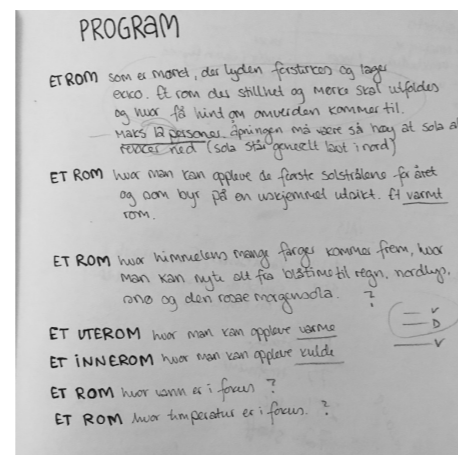 PROGRAM
ET ROM som er mørkt, der lyden forsterkes og lager
ekko. Et rom der stillhet og mørke skal utfoldes
og hvor få hint om omverden kommer til.
Maks 12 personer. Åpningen må være så høy at sola
rekker ned (sola står generelt lavt i nord)
ET ROM hvor man kan oppleve de første solstrålene for året
og som byr på en uskjemmet utsikt. Et varmt
rom.
ET ROM hvor himmelens mange farger kommer frem, hvor
man kan nyte alt fra blåtime til regn, nordlys,
snø og den rosae morgensola. ?
V
D
V
ET UTEROM hvor man kan oppleve varme
ET INNEROM hvor man kan oppleve kulde
ET ROM hvor vann er i fokus ?
ET ROM hvor temperatur er i fokus. ?